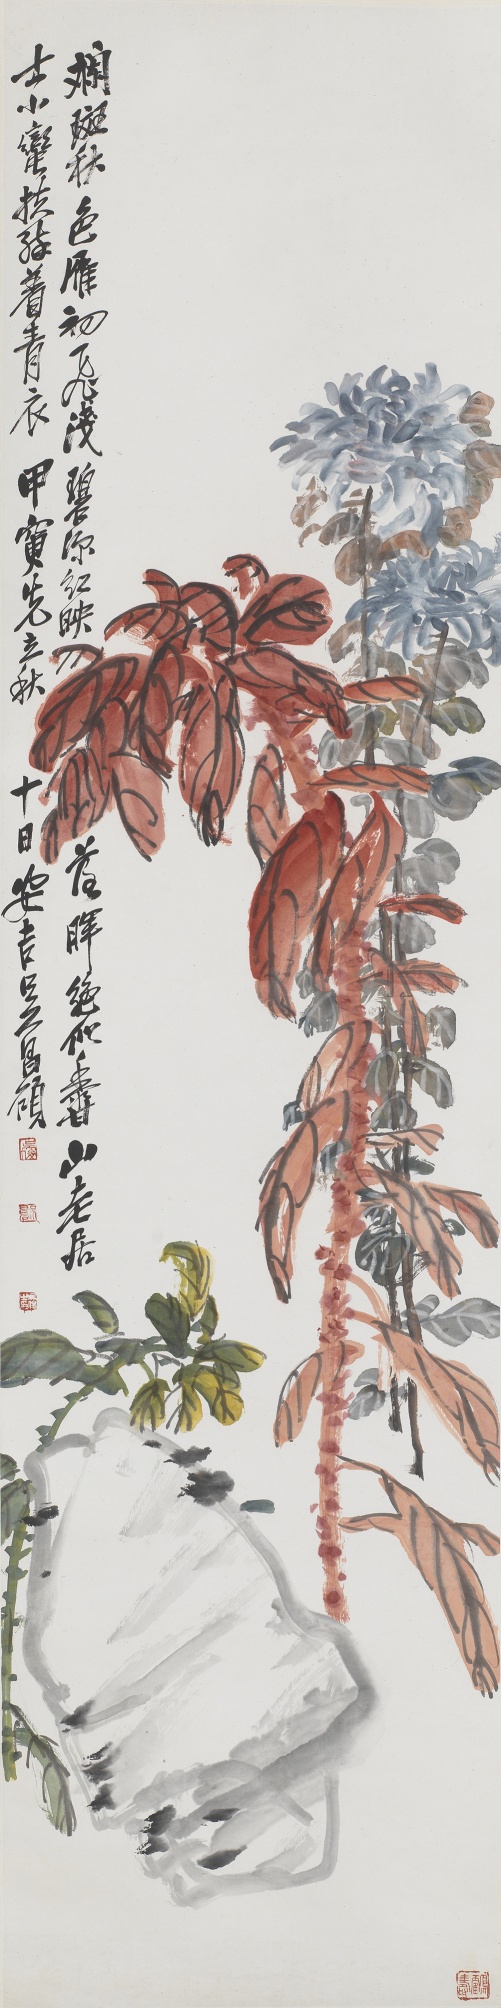 斕斑秋色雁初飛淺碧深紅映落暉絕似香山老居
士小蠻扶醉著青衣 甲寅先立秋十日安吉吳昌碩